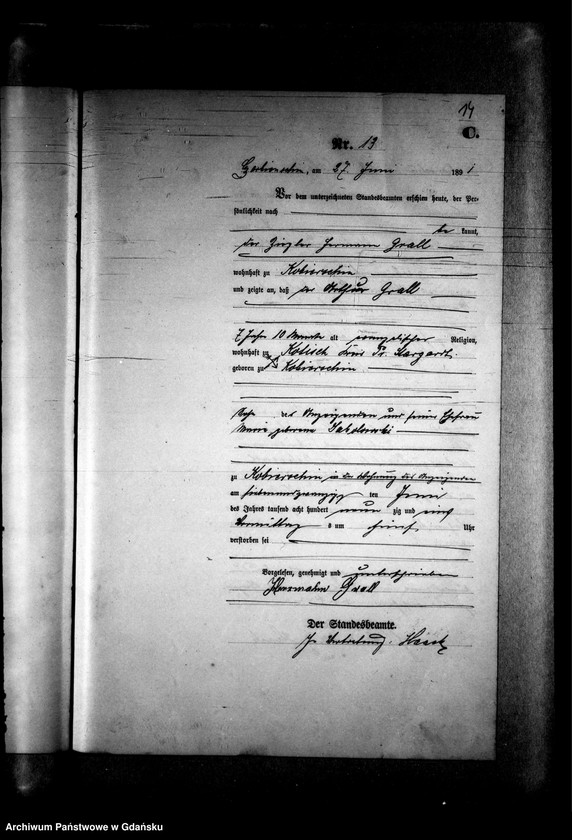 14
C.
Nr. 13
am 27. Juni 1891
Vor dem unterzeichneten Standesbeamten erschien heute, der Per-
sönlichkeit nach
be kannt,
der Ziegler Hermann Grall
wohnhaft zu Kobierschin
und zeigte an, daß der Arthur Grall
7 Jahre 10 Monate alt evangelischer Religion,
wohnhaft zu Kreis Pr. Stargardt
geboren zu Kobierschin
Sohn des Anzeigenden und seiner Ehefrau
Maria geborene
zu Kobierschin in der Wohnung des Anzeigenden
am siebenundzwanzig ten Juni
des Jahres tausend acht hundert neun zig und eins
Vormittag s um fünf Uhr
verstorben sei
Vorgelesen, genehmigt und unterschrieben
Hermann Grall
Der Standesbeamte.
In Vertretung.
Archiwum Państwowe w Gdańsku